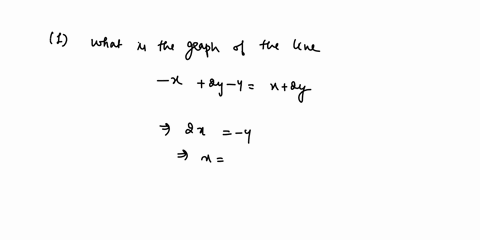 (1) What is the graph of the line
-x + 2y - 4 = x + 2y
⇒ 2x = -4
⇒ x =